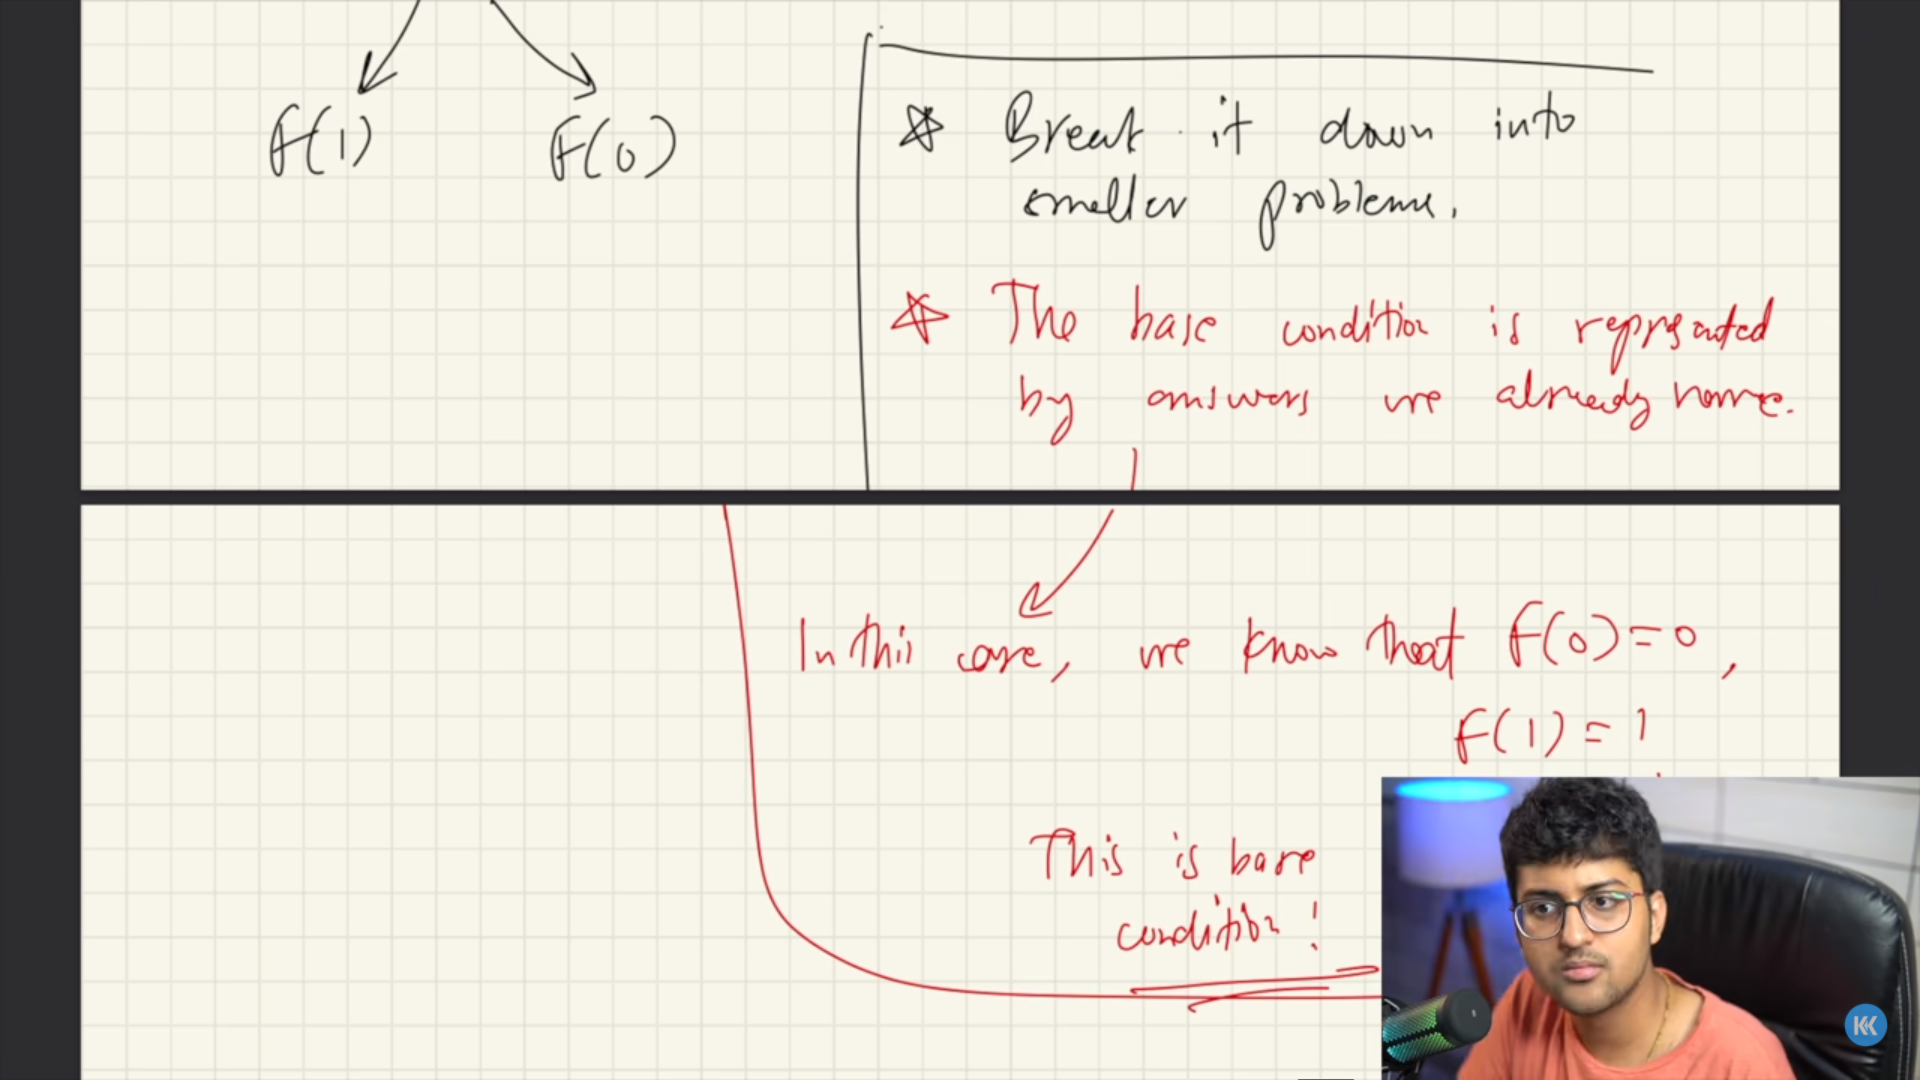 f(1) f(0)
Break it down into
smaller problems.
The base condition is represented
by answers we already have.
In this case, we know that f(0)=0,
f(1)=1
This is base
condition!
KK